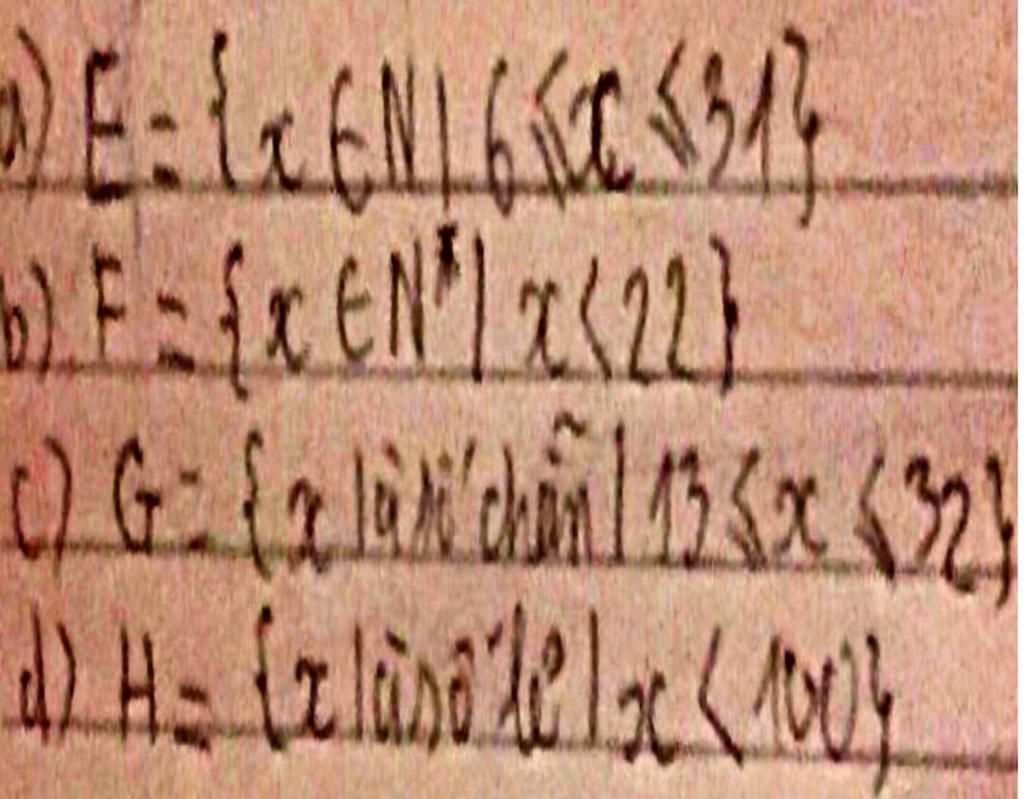 a) E = {x ∈ N | 6 ⩽ x ⩽ 31}
b) F = {x ∈ N* | x < 22}
c) G = {x là số chẵn | 13 ⩽ x ⩽ 32}
d) H = {x là số lẻ | x < 100}